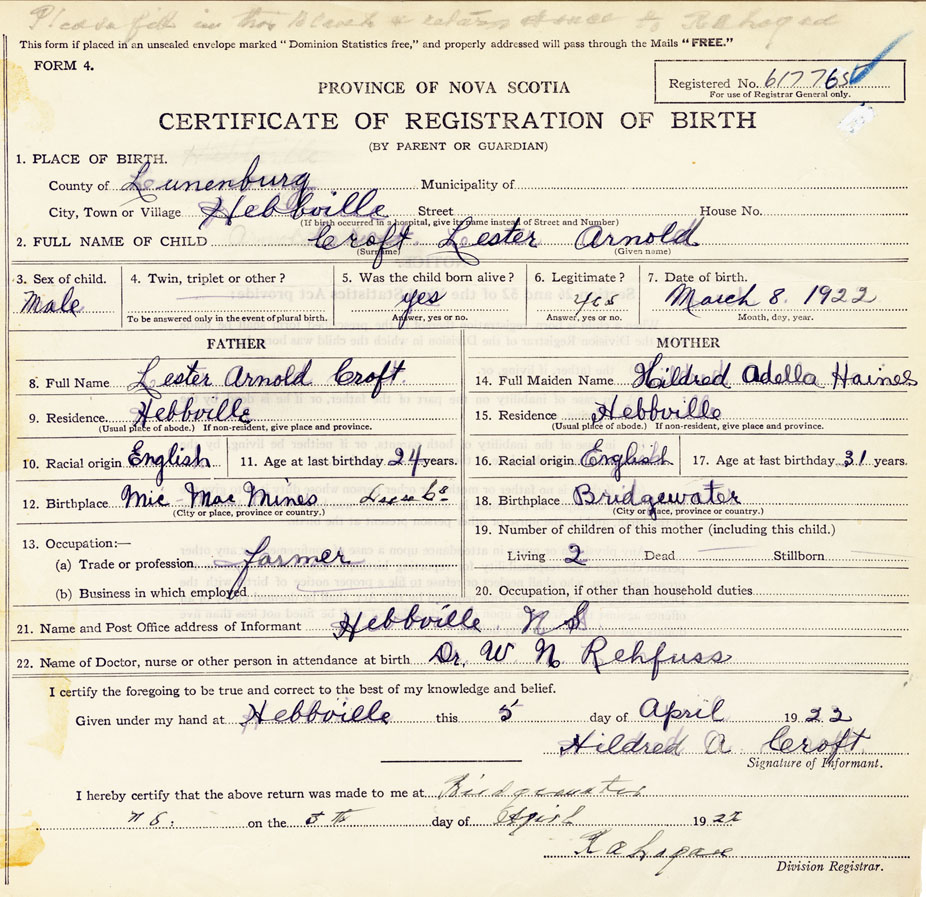 Please fill in this Blank & return at once to R A Logan
This form if placed in an unsealed envelope marked "Dominion Statistics free," and properly addressed will pass through the Mails "FREE."
FORM 4.
Registered No. 617765
For use of Registrar General only.
PROVINCE OF NOVA SCOTIA
CERTIFICATE OF REGISTRATION OF BIRTH
(BY PARENT OR GUARDIAN)
1. PLACE OF BIRTH.
County of Lunenburg Municipality of
City, Town or Village Hebbville Street House No.
(If birth occurred in a hospital, give its name instead of Street and Number)
2. FULL NAME OF CHILD Croft. Lester Arnold
(Surname) (Given name)
3. Sex of child. 4. Twin, triplet or other? 5. Was the child born alive? 6. Legitimate? 7. Date of birth.
Male yes yes March 8. 1922
To be answered only in the event of plural birth. Answer, yes or no. Answer, yes or no. Month, day, year.
FATHER MOTHER
8. Full Name Lester Arnold Croft. 14. Full Maiden Name Hildred Adella Haines
9. Residence Hebbville 15. Residence Hebbville
(Usual place of abode.) If non-resident, give place and province. (Usual place of abode.) If non-resident, give place and province.
10. Racial origin English 11. Age at last birthday 24 years. 16. Racial origin English 17. Age at last birthday 31 years.
12. Birthplace Mic Mac Mines 18. Birthplace Bridgewater
(City or place, province or country.) (City or place, province or country.)
13. Occupation:— 19. Number of children of this mother (including this child.)
(a) Trade or profession farmer Living 2 Dead Stillborn
(b) Business in which employed 20. Occupation, if other than household duties
21. Name and Post Office address of Informant Hebbville N S
22. Name of Doctor, nurse or other person in attendance at birth Dr. W. N. Rehfuss
I certify the foregoing to be true and correct to the best of my knowledge and belief.
Given under my hand at Hebbville this 5 day of April 1922
Hildred A. Croft.
Signature of Informant.
I hereby certify that the above return was made to me at Bridgewater
N S. on the 5th day of April 1922
R A Logan
Division Registrar.